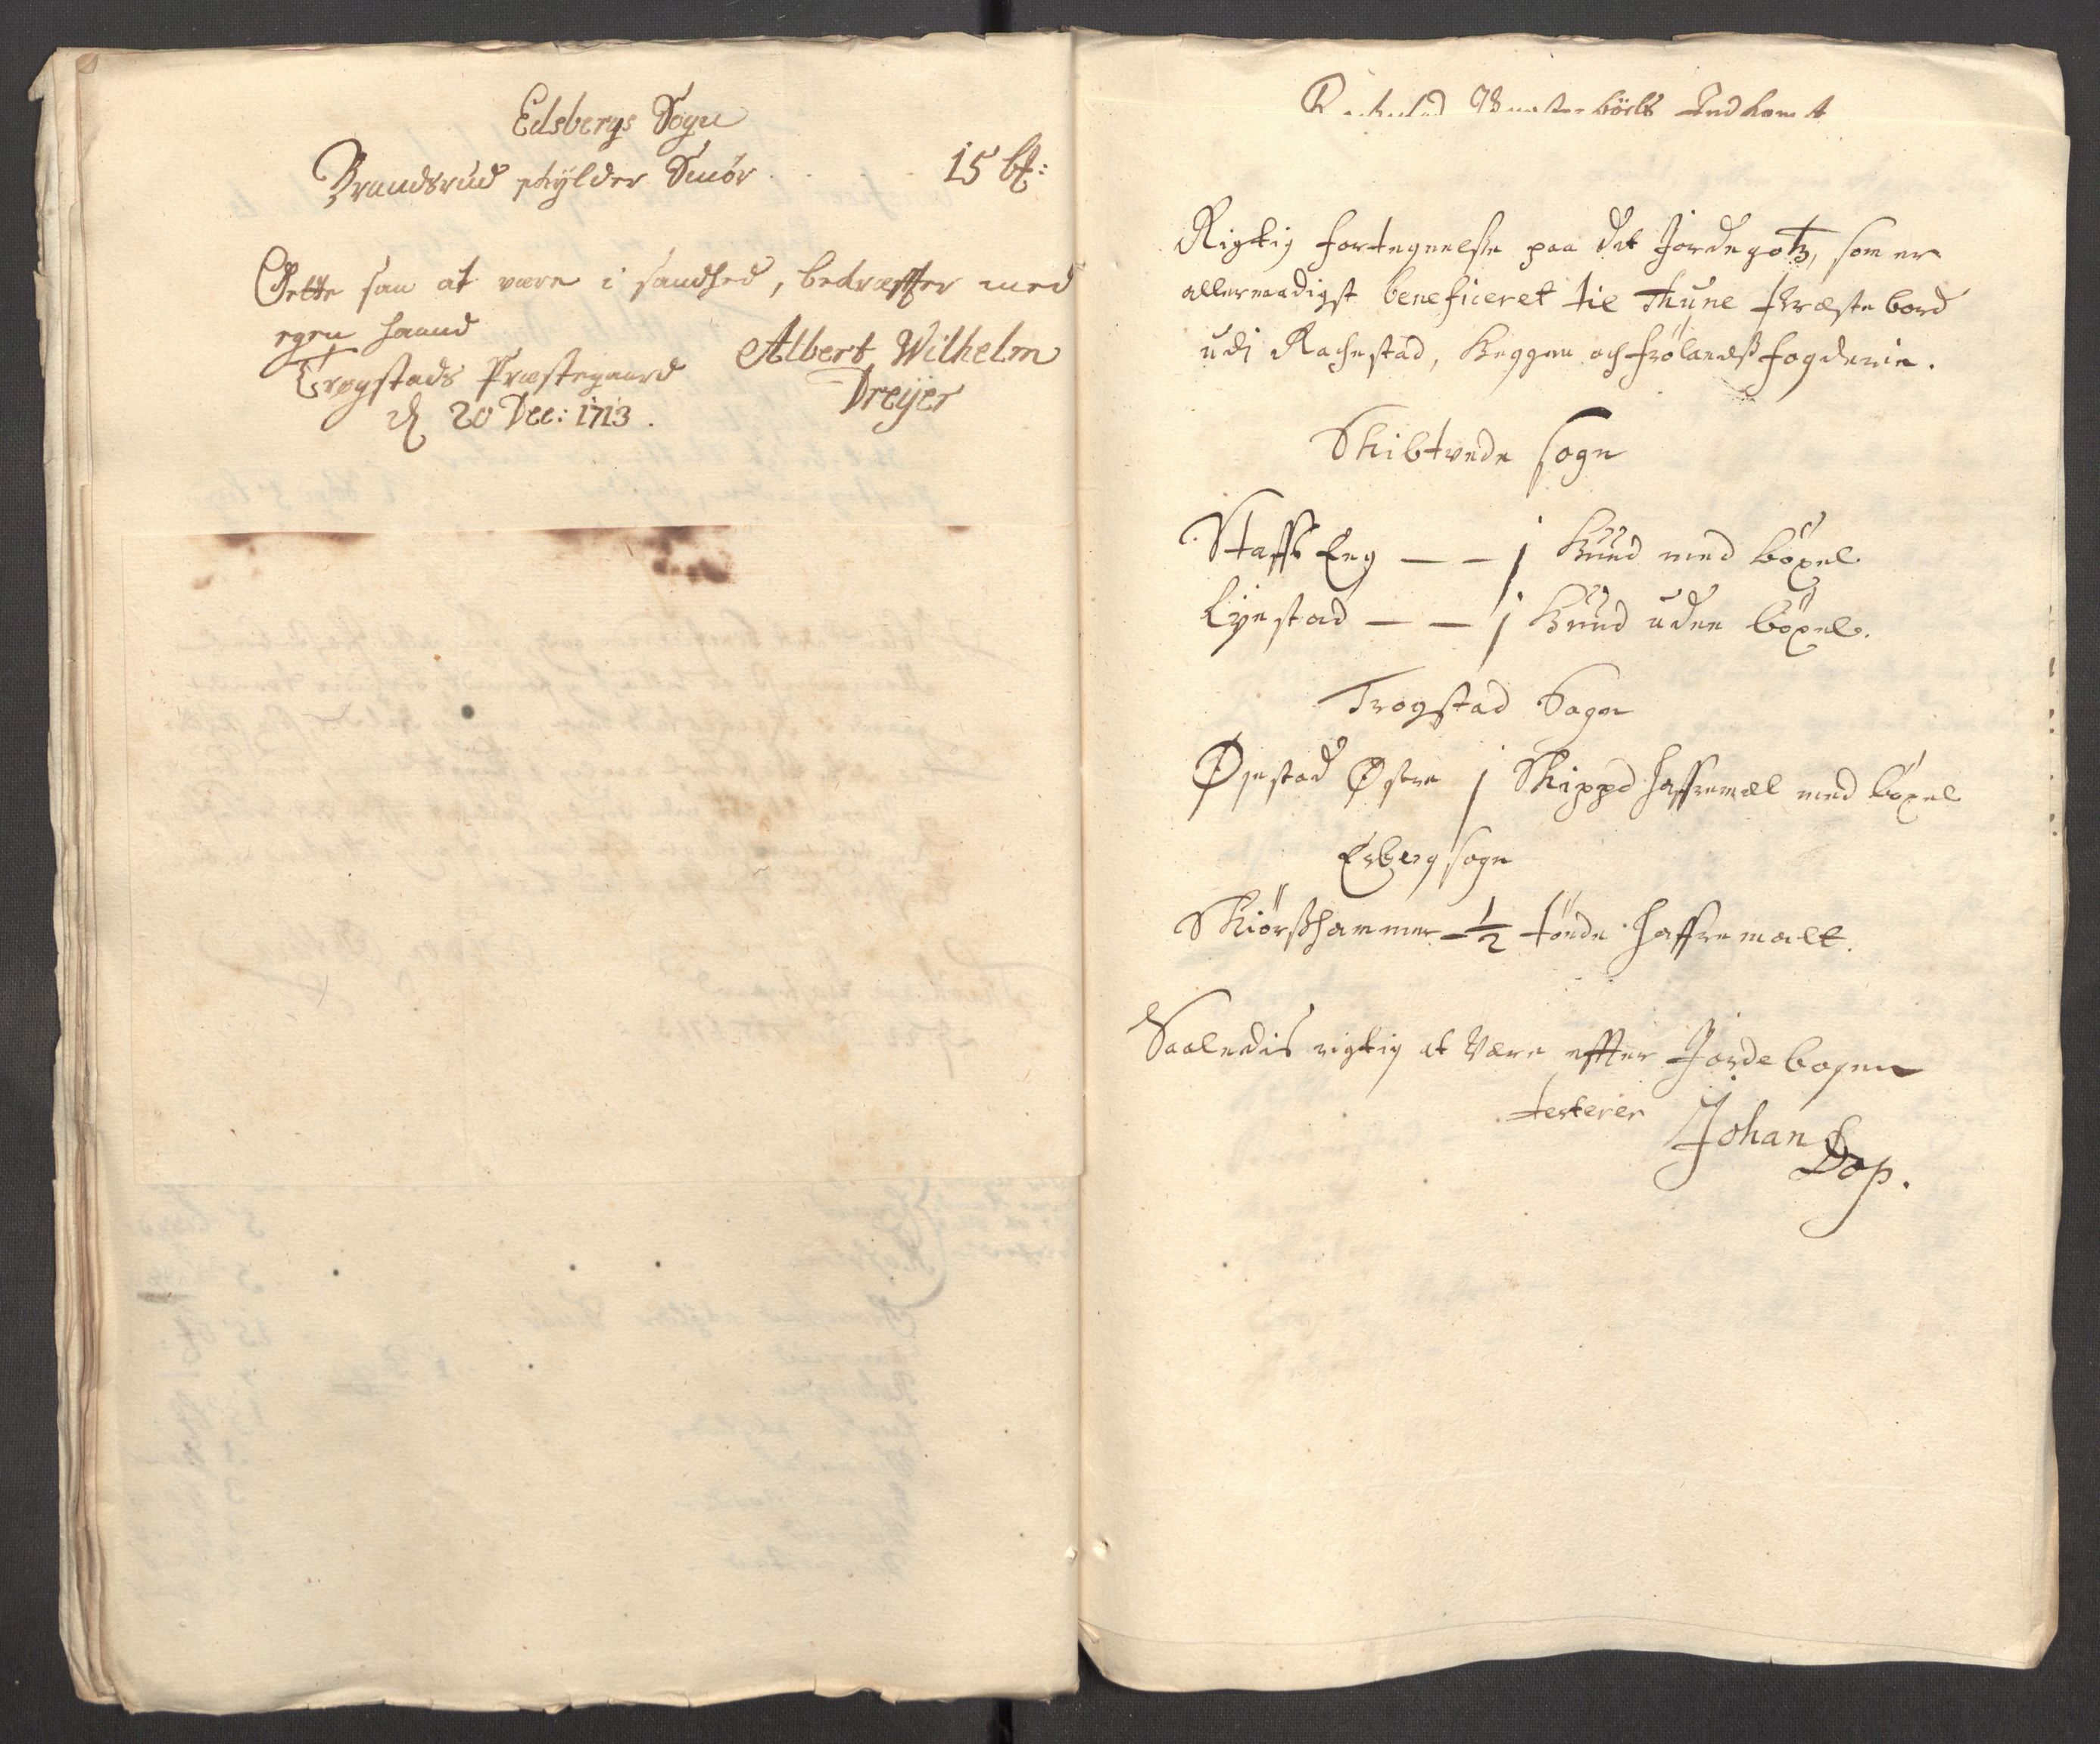 Edsbergs Sogn
Brandsrud schylder Smör . . . 15 b#:
Dette saa at være i sandhed, bekræffter med
egen haand
Trøgstads Præstegaard Albert Wilhelm
d 20 Dec: 1713. Dreyer
Indkomst
Rigtig fortegnelse paa det Jordegotz, som er
allernaadigst beneficeret til Thune Præstebord
udi Rachestad, Heggen och Frølands fogderie.
Skibtvede sogn
Staffs Eng — — j Huud med böxel
Lyestad — — j Huud uden böxel.
Trogstad Sogn
Øyestad Østre j Skippd haffremæl med böxel
Esberg sogn
Skiörshammer — 1/2 tönde haffremalt.
Saaledis rigtig at være effter Jordebogen
testerer Johan
Dop.